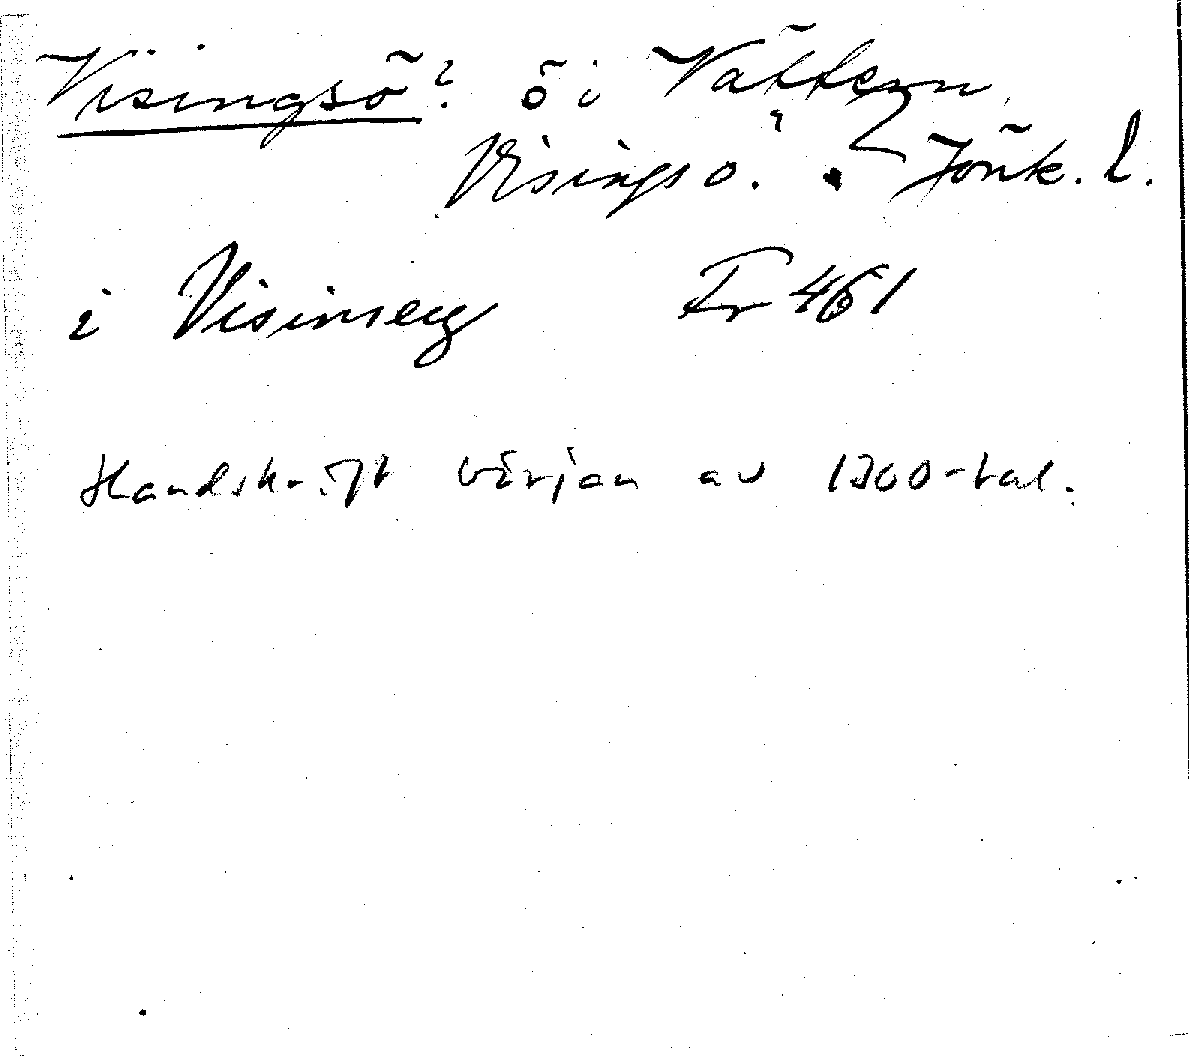 Visingsö? ö i Vättern
Visingsö. Jönk. l.
i Visinsey Fr 461
Handskrift början av 1300-tal.